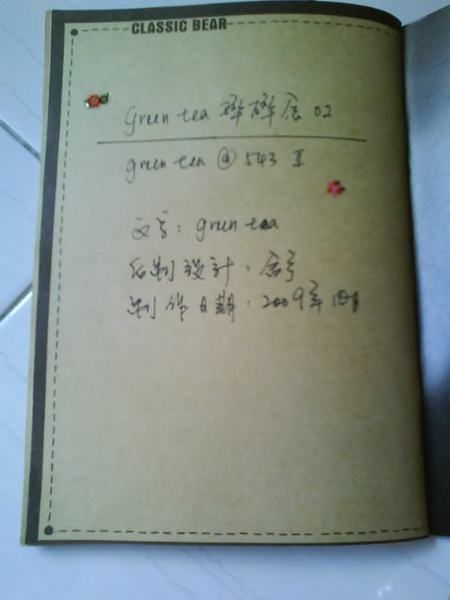 CLASSIC BEAR
green tea 碎碎念 02
green tea @ 543 II
文字：green tea
印制設計：念兮
制作日期：2009年10月